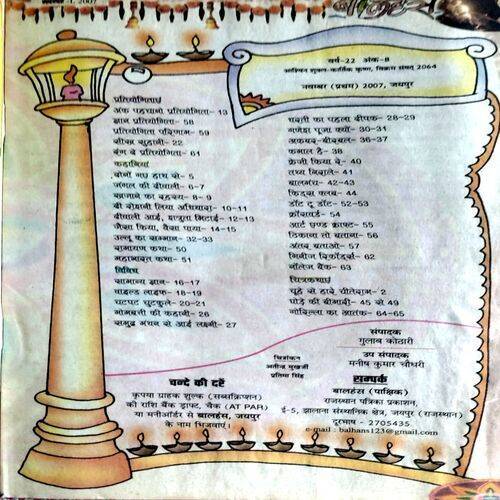 नवम्बर -I, 2007
वर्ष-22 अंक-8
आश्विन शुक्ल-कार्तिक कृष्ण, विक्रम संवत् 2064
नवम्बर (प्रथम) 2007, जयपुर
प्रतियोगिताएं
अंक पहचानो प्रतियोगिता- 13
ज्ञान प्रतियोगिता- 58
प्रतियोगिता परिणाम- 59
सीख सुहानी- 22
रंग दे प्रतियोगिता- 61
कहानियां
बौनों का हाथ से- 5
जंगल की दीवाली- 6-7
खजाने का रहस्य- 8-9
दीवाली आई, बाबुल मिठाई- 12-13
जैसा किया, वैसा पाया- 14-15
उल्लू का सम्मान- 32-33
रामायण कथा- 50
महाभारत कथा- 51
विविध
सामान्य ज्ञान- 16-17
वाइल्ड लाइफ- 18-19
चटपट चुटकुले- 20-21
मोमबत्ती की कहानी- 26
समुद्र मंथन से आई लक्ष्मी- 27
धरती का पहला दीपक- 28-29
गणेश पूजा क्यों- 30-31
अकबर-बीरबल- 36-37
कमाल है- 38
तथ्य निराले- 41
बालमंच- 42-43
किड्स क्लब- 44
डॉट टू डॉट- 52-53
क्रॉसवर्ड- 54
आर्ट एण्ड क्राफ्ट- 55
ठिकाना तो बताना- 56
अंतर बताओ- 57
गिनीज रिकॉर्ड्स- 62
नॉलेज बैंक- 63
चित्रकथाएं
चूहे से हारे चीतेराम- 2
घोड़े की बीमारी- 45 से 49
गोरिल्ला का आतंक- 64-65
संपादक
गुलाब कोठारी
उप संपादक
मनीष कुमार चौधरी
चित्रांकन
अतीन्द्र मुखर्जी
प्रतिमा सिंह
चन्दे की दरें
कृपया ग्राहक शुल्क (सब्सक्रिप्शन)
की राशि बैंक ड्राफ्ट, चैक (AT PAR)
या मनीऑर्डर से बालहंस, जयपुर
के नाम भिजवाएं।
सम्पर्क
बालहंस (पाक्षिक)
राजस्थान पत्रिका प्रकाशन,
ई-5, झालाना संस्थानिक क्षेत्र, जयपुर (राजस्थान)
दूरभाष - 2705435
e-mail : balhans123@gmail.com